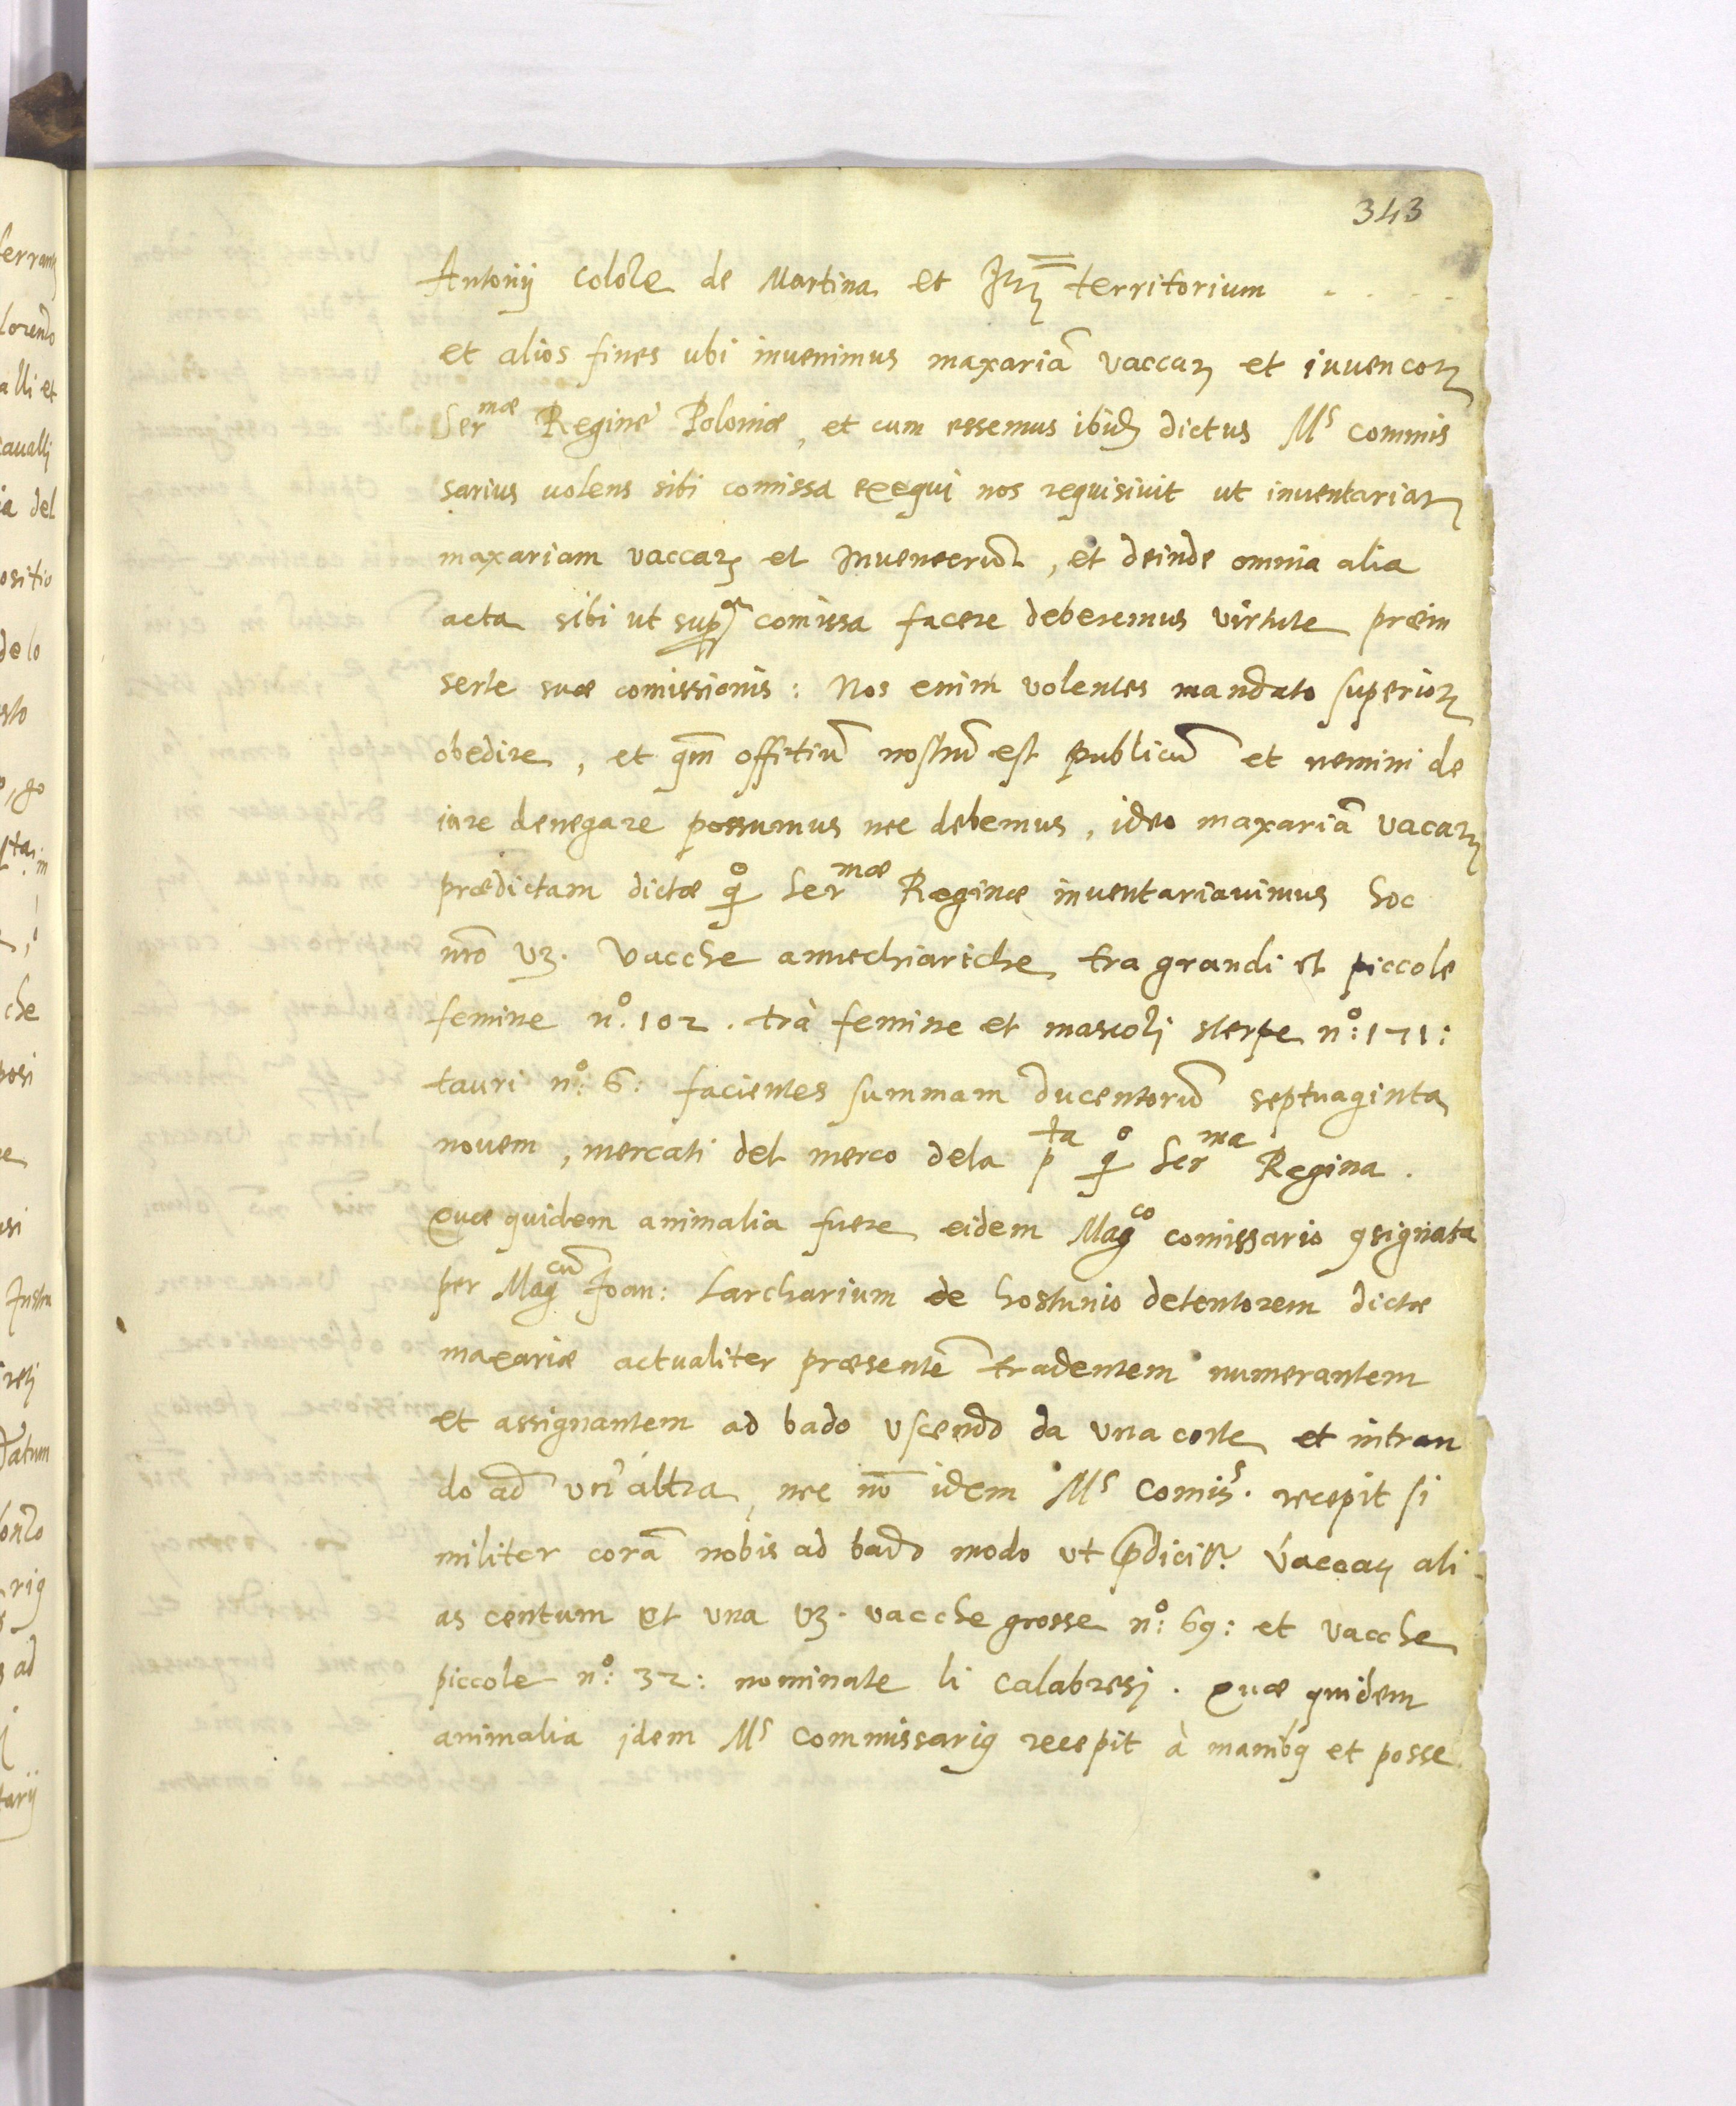 343
Antonij Colole de Martina et territorium . . . .
et alios fines ubi invenimus maxariā vaccaꝝ et iuuencoꝝ
Serᵐᵃᵉ Regine Poloniæ, et cum essemus ibidꝫ dictus Mˢ commis
sarius uolens sibi comissa exequi nos requisivit ut inventariaꝝ
maxariam vaccaꝝ et Invencorum, et deinde omnia alia
acta sibi ut supᵃ comissa facere deberemus virtute præin
serte suæ comissionis: Nos enim volentes mandato superioꝝ
obedire, et qm̄ offitiū nostrū est publicū et nemini de
iure denegare possumus nec debemus, ideo maxariā vacaꝝ
prædictam dictæ qº Serᵐᵃᵉ Reginæ inventariauimus hoc
mō vꝫ. Vacche annechiariche tra grandi et piccole
femine nº. 102. trà femine et mascoli sterpe nº: 171:
tauri nº: 6: facientes summam ducentorū septuaginta
novem, mercati del merco dela pᵗᵃ qº Serᵐᵃ Regina.
Quæ quidem animalia fuere eidem Magᶜᵒ comissario ꝯsignata
per Magᶜᵘ̄ Joan: Larcharium de hostunio detentorem dictæ
maxariæ actualiter præsentē tradentem numerantem
et assignantem ad bado uscendo da una corte et intran
do ad un'altra, nec nō idem Mˢ Comisˢ. recepit si
militer corā nobis ad bado modo ut p̄dicitʳ. Vaccas ali
as centum et una vꝫ. vacche grosse nº: 69: et vacche
piccole nº: 32: nominate li Calabresj. Quæ quidem
animalia jdem Mˢ Commissariꝰ recepit à manibꝰ et posse